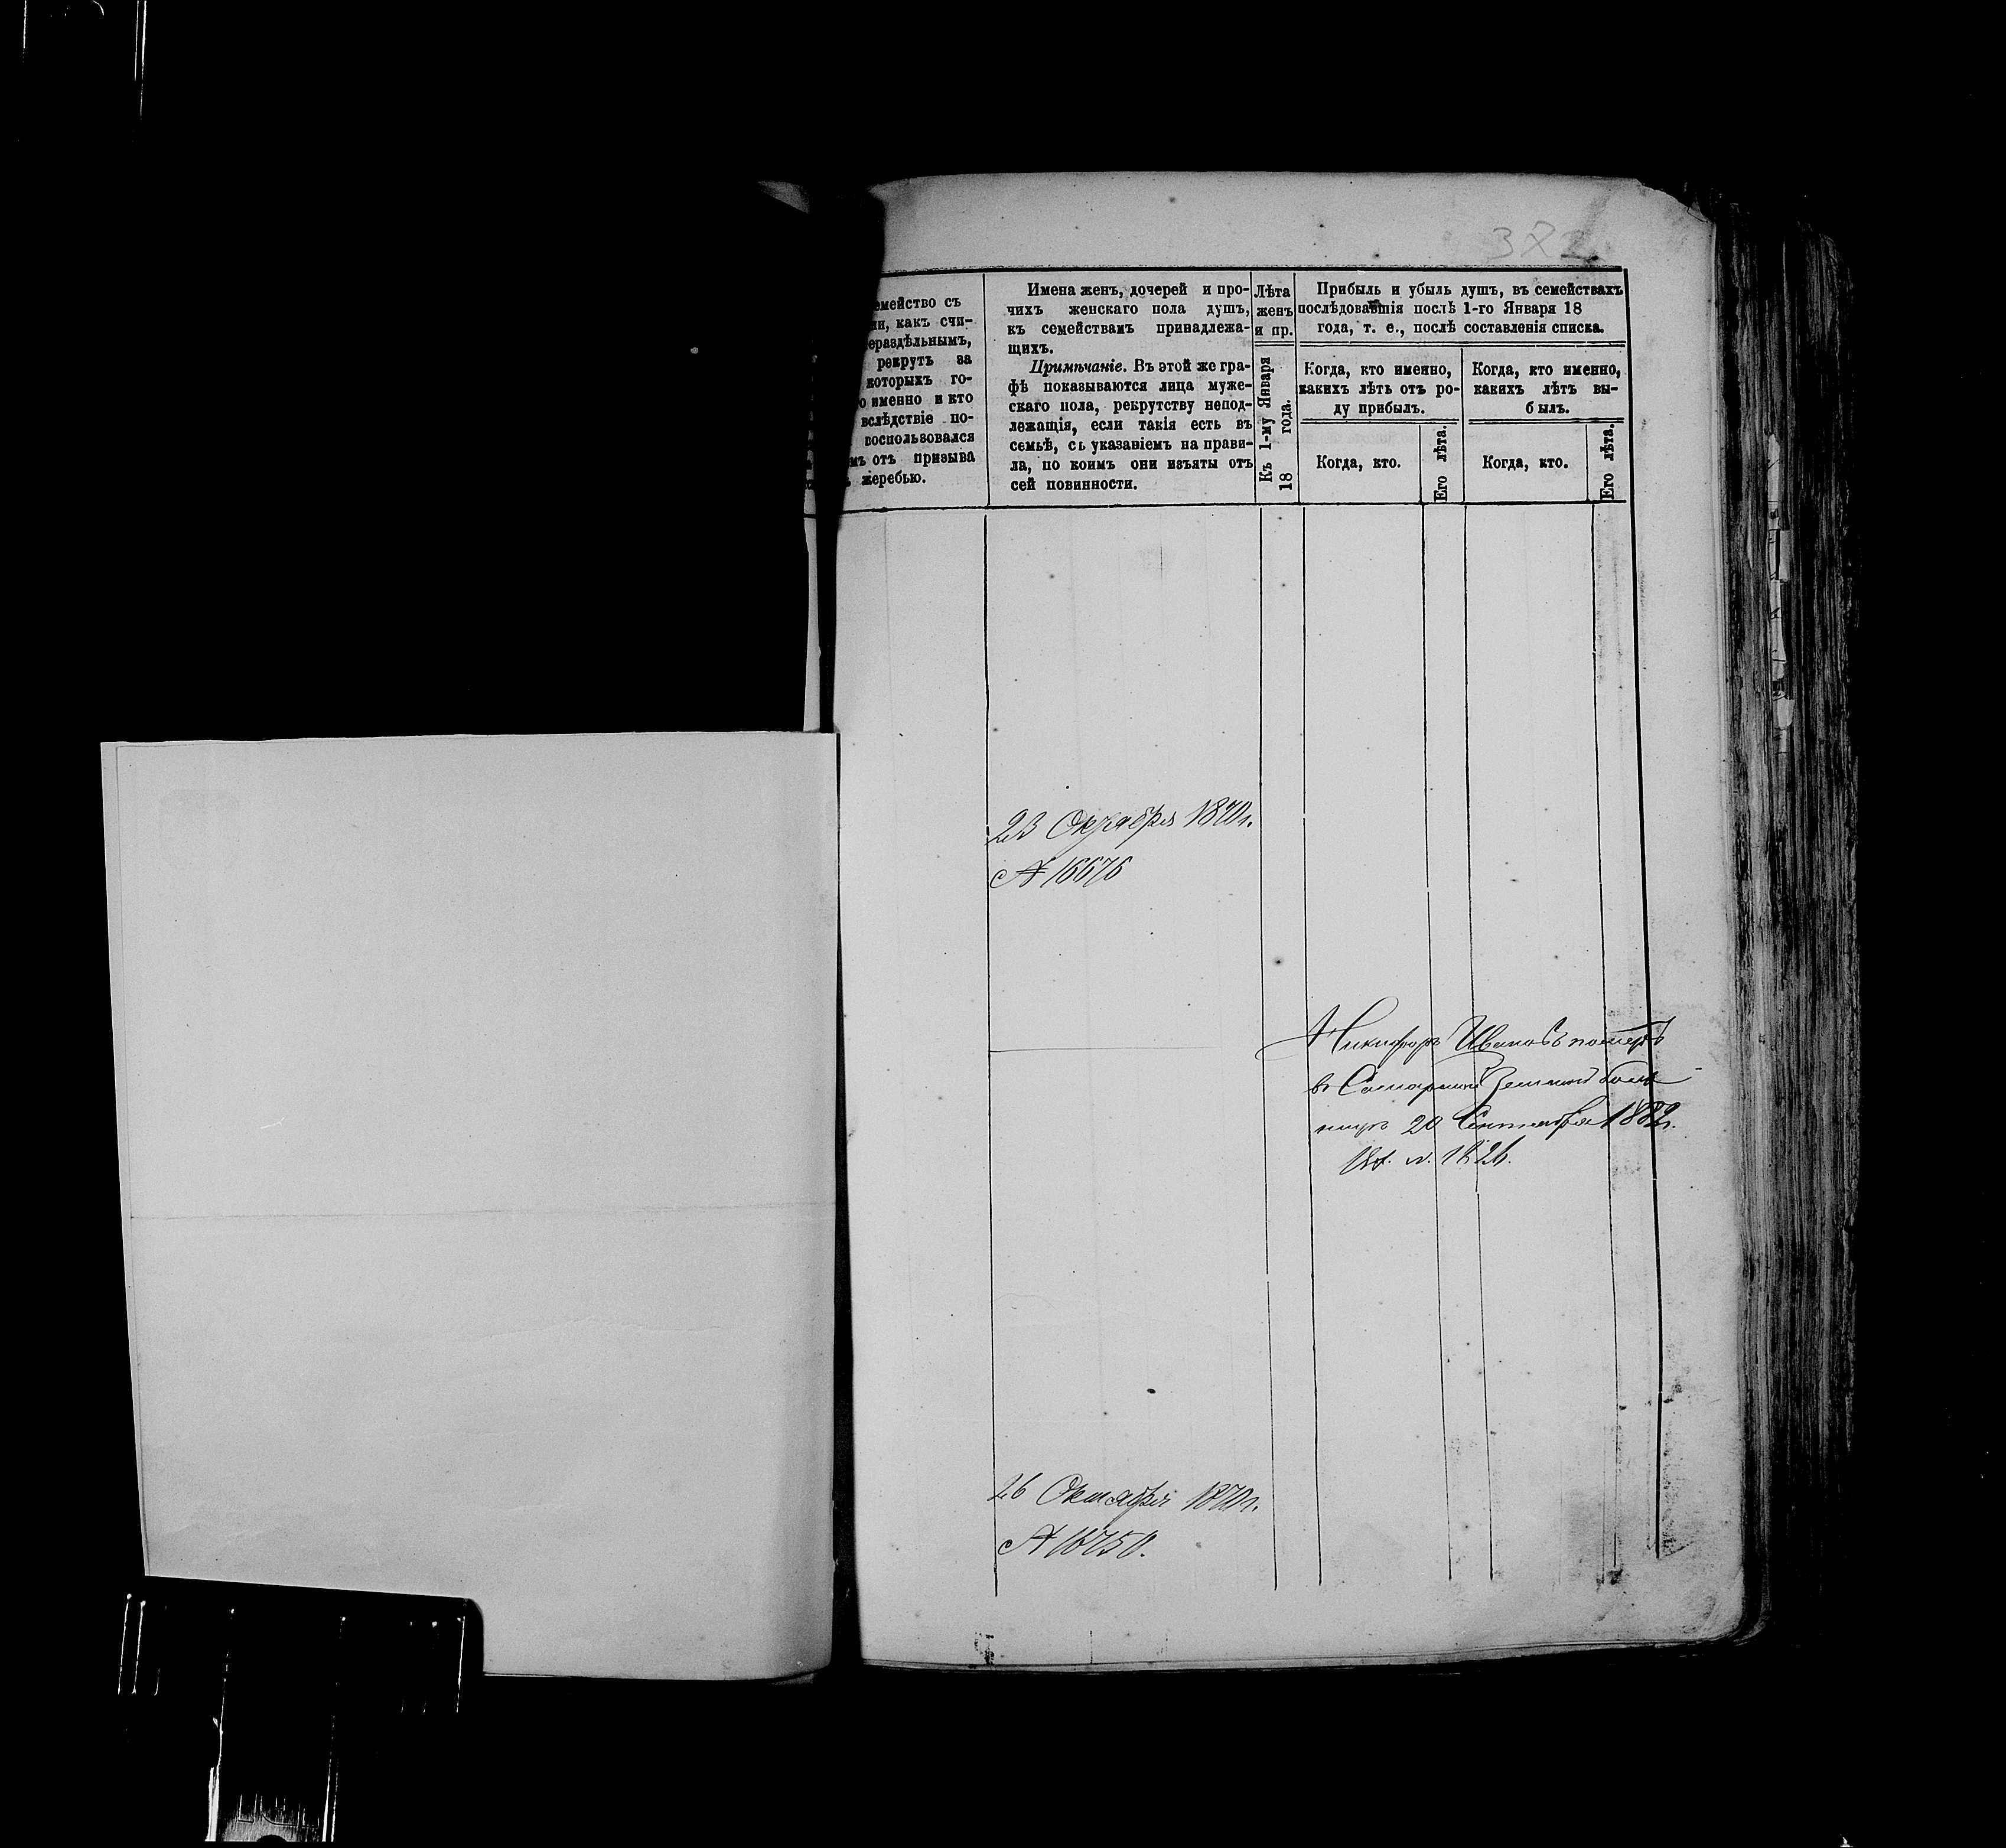 382
емейство съ
ни, какъ счи-
ераздѣльнымъ,
рекрутъ за
которыхъ го-
о именно и кто
вслѣдствіе по-
воспользовался
мъ отъ призыва
жеребью.
Имена женъ, дочерей и про-
чихъ женскаго пола душъ,
къ семействамъ принадлежа-
щихъ.
Примѣчаніе. Въ этой же гра-
фѣ показываются лица муже-
скаго пола, рекрутству непод-
лежащія, если такія есть въ
семьѣ, съ указаніемъ на прави-
ла, по коимъ они изъяты отъ
сей повинности.
Лѣта
женъ
и пр.
Къ 1-му Января
18 года.
Прибыль и убыль душъ, въ семействахъ
послѣдовавшія послѣ 1-го Января 18
года, т. е., послѣ составленія списка.
Когда, кто именно,
какихъ лѣтъ отъ ро-
ду прибылъ.
Когда, кто.
Его лѣта.
Когда, кто именно,
какихъ лѣтъ вы-
былъ.
Когда, кто.
Его лѣта.
23 Октября 1870 г.
№ 16676
Никифоръ Ивановъ померъ
въ Самарской Земской боль-
ницѣ 20 Сентября 1882 г.
26 Октября 1870 г.
№ 16750.